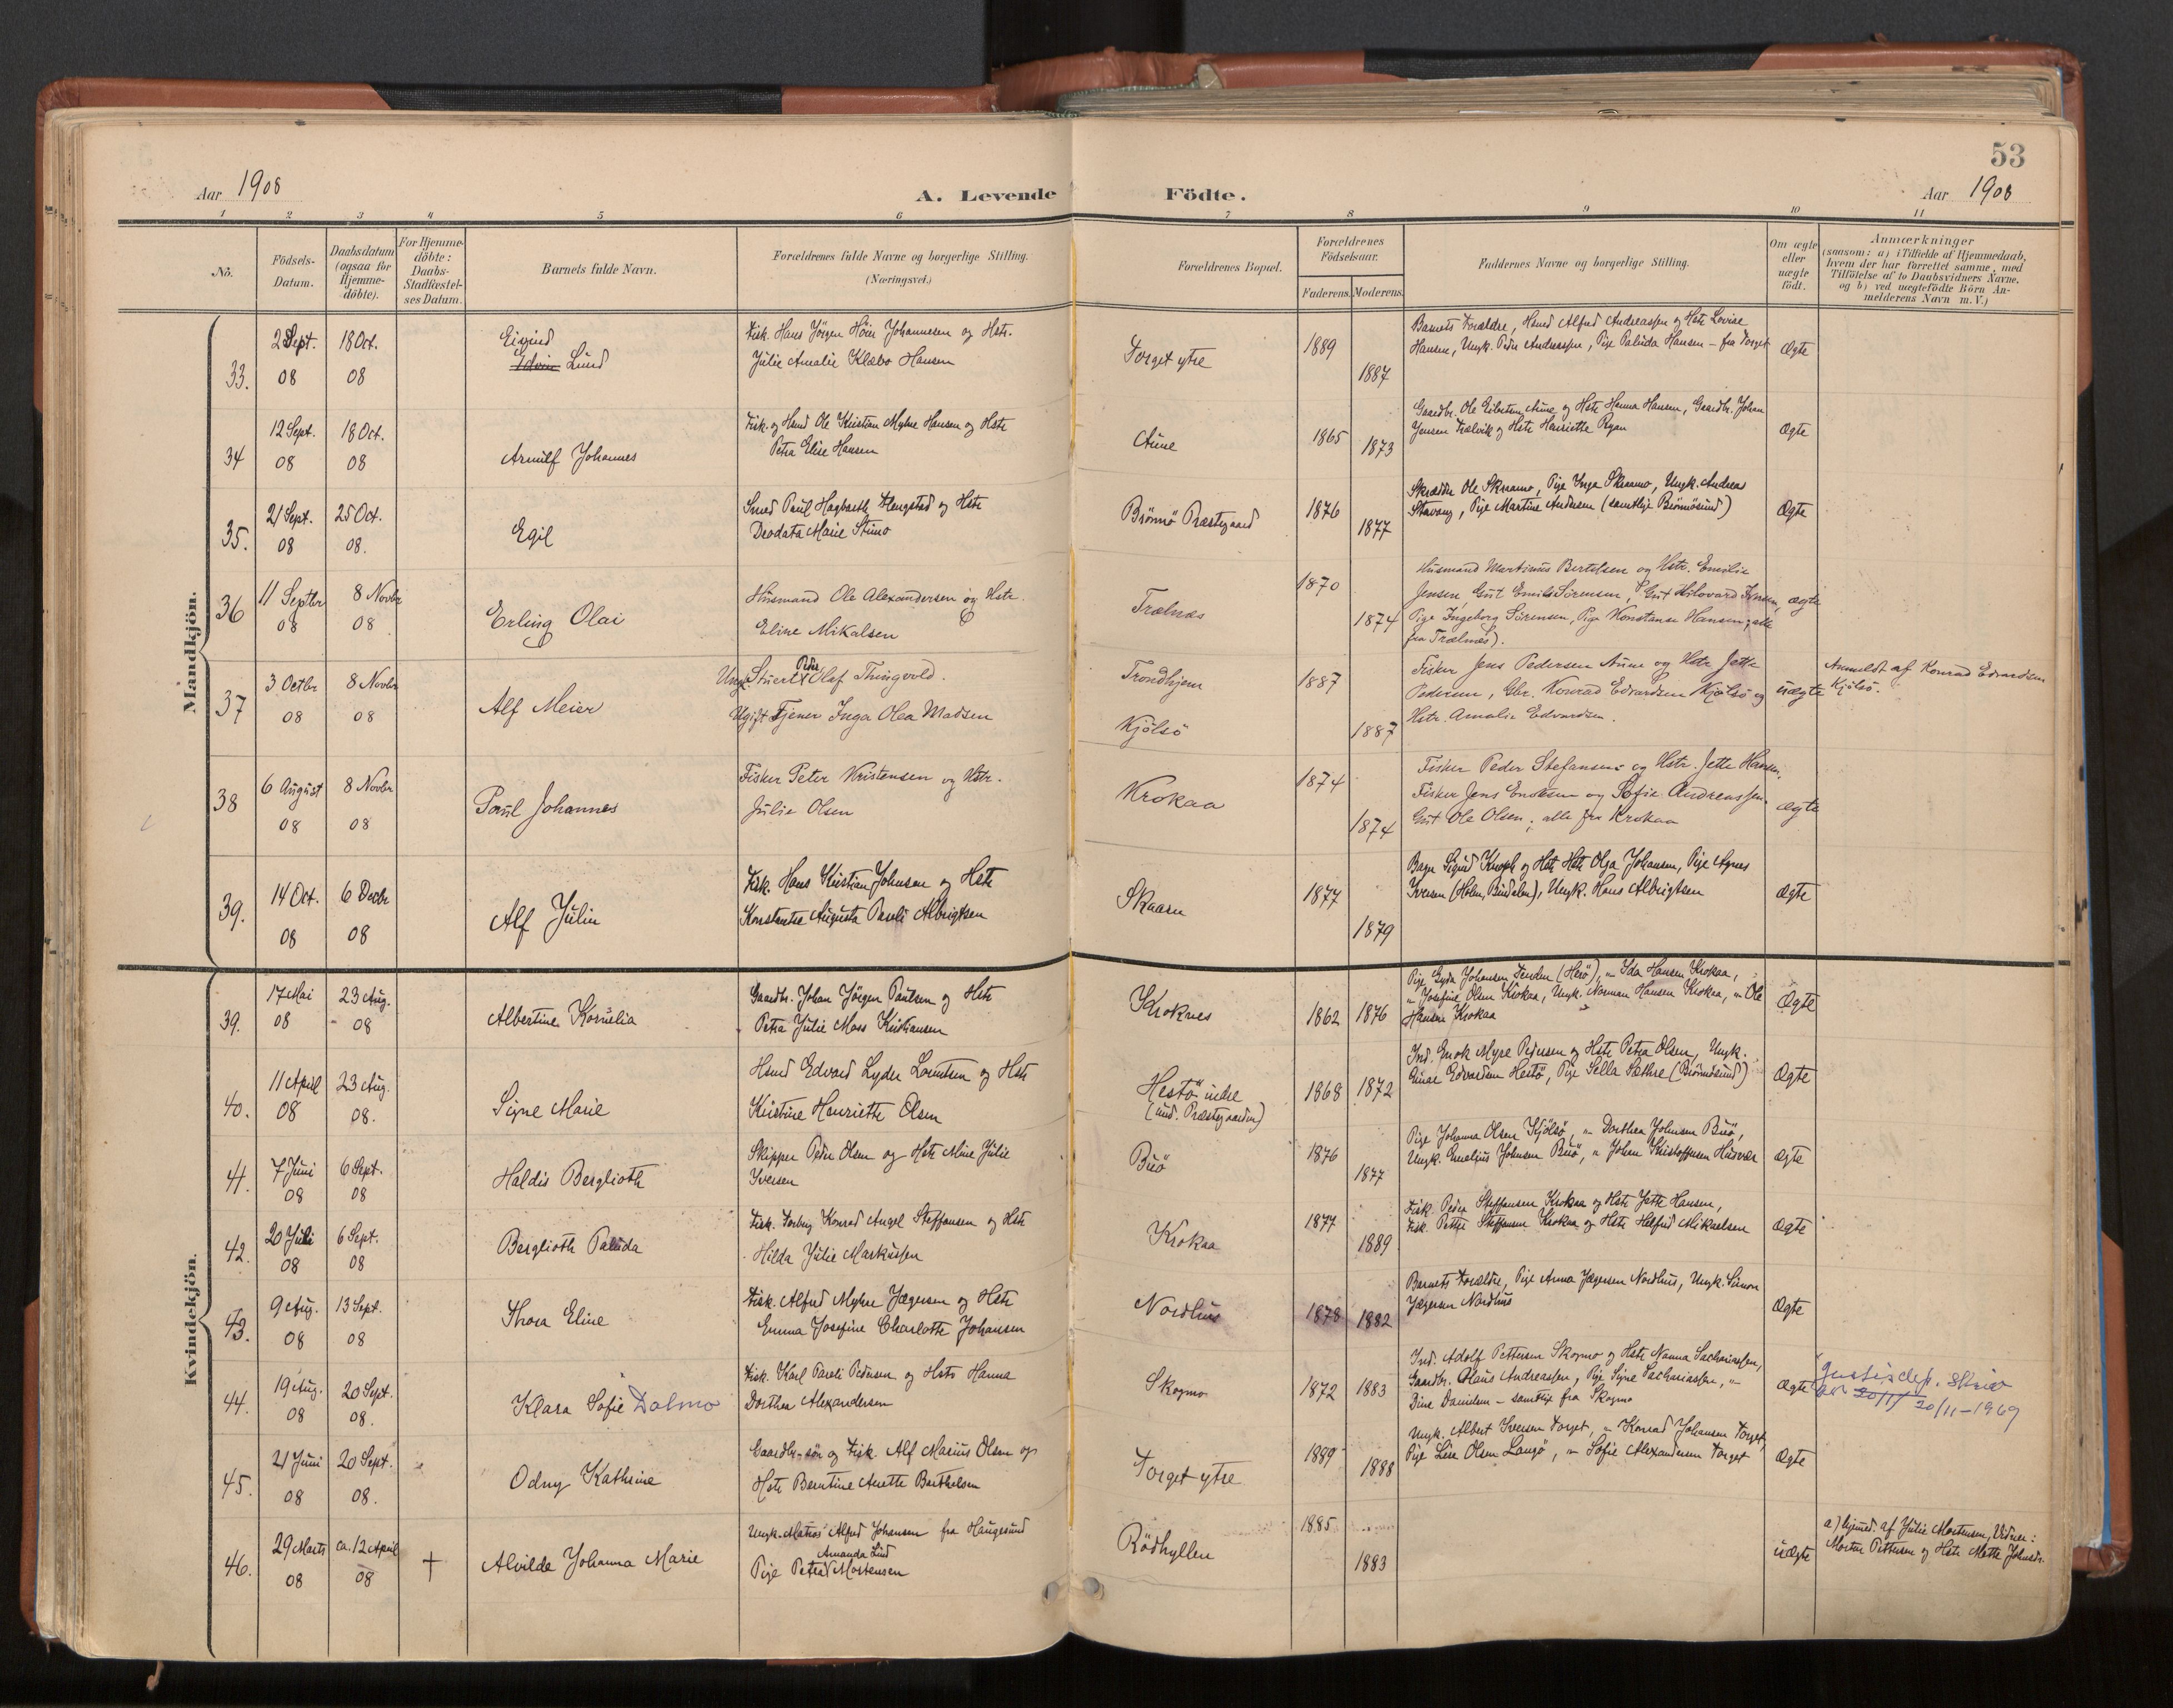 53
Aar 1908
A. Levende Födte.
Aar 1908
1 2 3 4 5 6 7 8 9 10 11
No.
Födsels-
Datum.
Daabsdatum
(ogsaa for
Hjemme-
döbte).
For Hjemme-
döbte:
Daabs-
Stadfæstel-
ses Datum.
Barnets fulde Navn.
Forældrenes fulde Navne og borgerlige Stilling.
(Næringsvei.)
Forældrenes Bopæl.
Forældrenes
Födselsaar.
Faderens. Moderens.
Faddernes Navne og borgerlige Stilling.
Om ægte
eller
uægte
födt.
Anmærkninger
(saasom: a) i Tilfælde af Hjemmedaab,
hvem der har forrettet samme, med
Tilföielse af to Daabsvidners Navne,
og b) ved uægtefödte Börn An-
melderens Navn m. V.)
Mandkjön.
33.
2 Sept.
08
18 Oct.
08
Eivind
Edvin Lund
Fisk. Hans Jörgen Höier Johannesen og Hstr.
Julie Amalie Klæbo Hansen
Torget ytre
1889
1887
Barnets Forældre, Hsmd Alfred Andreassen og Hstr Lovise
Hansen, Ungk. Peder Andreassen, Pige Palida Hansen - fra Torget
Ægte
34
12 Sept.
08
18 Oct.
08
Arnulf Johannes
Fisk. og Hsmd Ole Kristian Myhre Hansen og Hstr
Petra Elise Hansen
Aune
1865
1873
Gaardbr. Ole Eilertsen Aune og Hstr Hanna Hansen, Gaardb. Johan
Jensen Trælvik og Hstr Henriette Ryan
Ægte
35.
21 Sept.
08
25 Oct.
08.
Egil
Smed Paul Hagbarth Hengstad og Hstr
Deodata Marie Stimo
Brönnö Præstegaard
1876
1877
Skrædder Ole Skraamo, Pige Inga Skraamo, Ungk. Andreas
Stavang, Pige Martine Andersen (samtlige Brönnösund)
Ægte
36
11 Septbr
08
8 Novbr
08
Erling Olai
Husmand Ole Alexandersen og Hstr.
Eline Mikalsen
Trælnæs
1870
1874
Husmand Martinus Bertelsen og Hstr. Emilie
Jensen, Gut Emil Sörensen, Gut Hilovard Iversen,
Pige Ingeborg Sörensen, Pige Konstanse Hansen; alle
fra Trælnæs).
ægte
37
3 Octbr
08
8 Novbr
08
Alf Meier
Peder
Ungk. Stuert Olaf Thingvold.
Ugift Tjener Inga Olea Madsen
Trondhjem
Kjölsö
1887
1887
Fisker Jens Pedersen Aune og Hstr Jette
Pedersen, Gbr. Konrad Edvardsen Kjölsö og
Hstr. Amalie Edvardsen.
uægte
Anmeldt af Konrad Edvardsen
Kjölsö.
38
6 August
08
8 Novbr
08
Paul Johannes
Fisker Peter Kristensen og Hstr.
Julie Olsen
Krokaa
1874
1874
Fisker Peder Stefansen og Hstr. Jette Hansen,
Fisker Jens Endresen og Sofie Andreassen,
Gut Ole Olsen; alle fra Krokaa
ægte
39.
14 Oct.
08
6 Decbr
08
Alf Julin
Fisk. Hans Kristian Johnsen og Hstr
Konstantse Augusta Pareli Albrigtsen
Skaaren
1877
1879
Bager Sigurd Knoph og Hstr Olga Johansen, Pige Agnes
Iversen (Holm, Bindalen), Ungk. Hans Albrigtsen
Ægte
Kvindekjön.
39.
17 Mai
08
23 Aug.
08
Albertine Kornelia
Gaardbr. Johan Jörgen Paulsen og Hstr
Petra Julie Moss Kristiansen
Kroknes
1862 1876
Pige Gyda Johansen Tenden (Herö), " Ida Hansen Krokaa,
" Josefine Olsen Krokaa, Ungk. Norman Hansen Krokaa, " Ole
Hansen Krokaa
Ægte
40.
11 April
08
23 Aug.
08.
Signe Marie
Hsmd Edvard Lyder Lorentsen og Hstr
Kristine Henriette Olsen
Hestö indre
(und. Præstegaarden)
1868 1872
Ind. Enok Myre Pedersen og Hstr Petra Olsen, Ungk.
Einar Edvardsen Hestö, Pige Sella Sæthre (Brönnösund)
Ægte
41.
7 Juni
08
6 Sept.
08
Haldis Berglioth
Skipper Peder Olsen og Hstr Mine Julie
Iversen
Buö
1876
1877
Pige Johanna Olsen Kjölsö, " Dorthea Johnsen Buö,
Ungk. Cornelius Johnsen Buö, " Johan Kristoffersen Husvær
Ægte
42.
20 Juli
08
6 Sept.
08
Berglioth Palida
Fisk. Torberg Konrad Angel Steffansen og Hstr
Hilda Julie Markussen
Krokaa
1877
1889
Fisk. Peder Steffansen Krokaa og Hstr Jette Hansen,
Fisk. Petter Steffansen Krokaa og Hstr Helfrid Mikaelsen
Ægte
43.
9 Aug.
08
13 Sept.
08
Thora Eline
Fisk. Alfred Myhre Jægersen og Hstr
Emma Josefine Charlotte Johansen
Nordhus
1878 1882
Barnets Forældre, Pige Anna Jægersen Nordhus, Ungk. Simon
Jægersen Nordhus
Ægte
44.
19 Aug.
08
20 Sept.
08.
Klara Sofie Dalmo
Fisk. Karl Pareli Pedersen og Hstr Hanna
Dorthea Alexandersen
Skogmo
1872 1883
Ind. Adolf Pettersen Skogmo og Hstr Nanna Sachariassen,
Gaardbr. Klaus Andreassen, Pige Signe Sachariassen, "
Dine Danielsen - samtlige fra Skogmo
Ægte
Justisdep. skriv
20/11 20/11-1969
45.
21 Juni
08
20 Sept.
08.
Odny Kathrine
Gaardbr.-sön og Fisk. Alf Marius Olsen og
Hstr Berntine Anette Berthelsen
Torget ytre
1889
1888
Ungk. Albert Iversen Torget, " Konrad Johansen Torget,
Pige Lise Olsen Langö, " Sofie Alexandersen Torget
Ægte
46.
29 Marts
08
ca. 12 April
08
†
Alvilde Johanna Marie
Ungk. Matros Alfred Johansen fra Haugesund
Amanda Lind
Pige Petra Mortensen
Rödhyllen
1885
1883
uægte
a) hjemmed. af Julie Mortensen, Vidner:
Morten Pettersen og Hstr Mette Johnsdr.